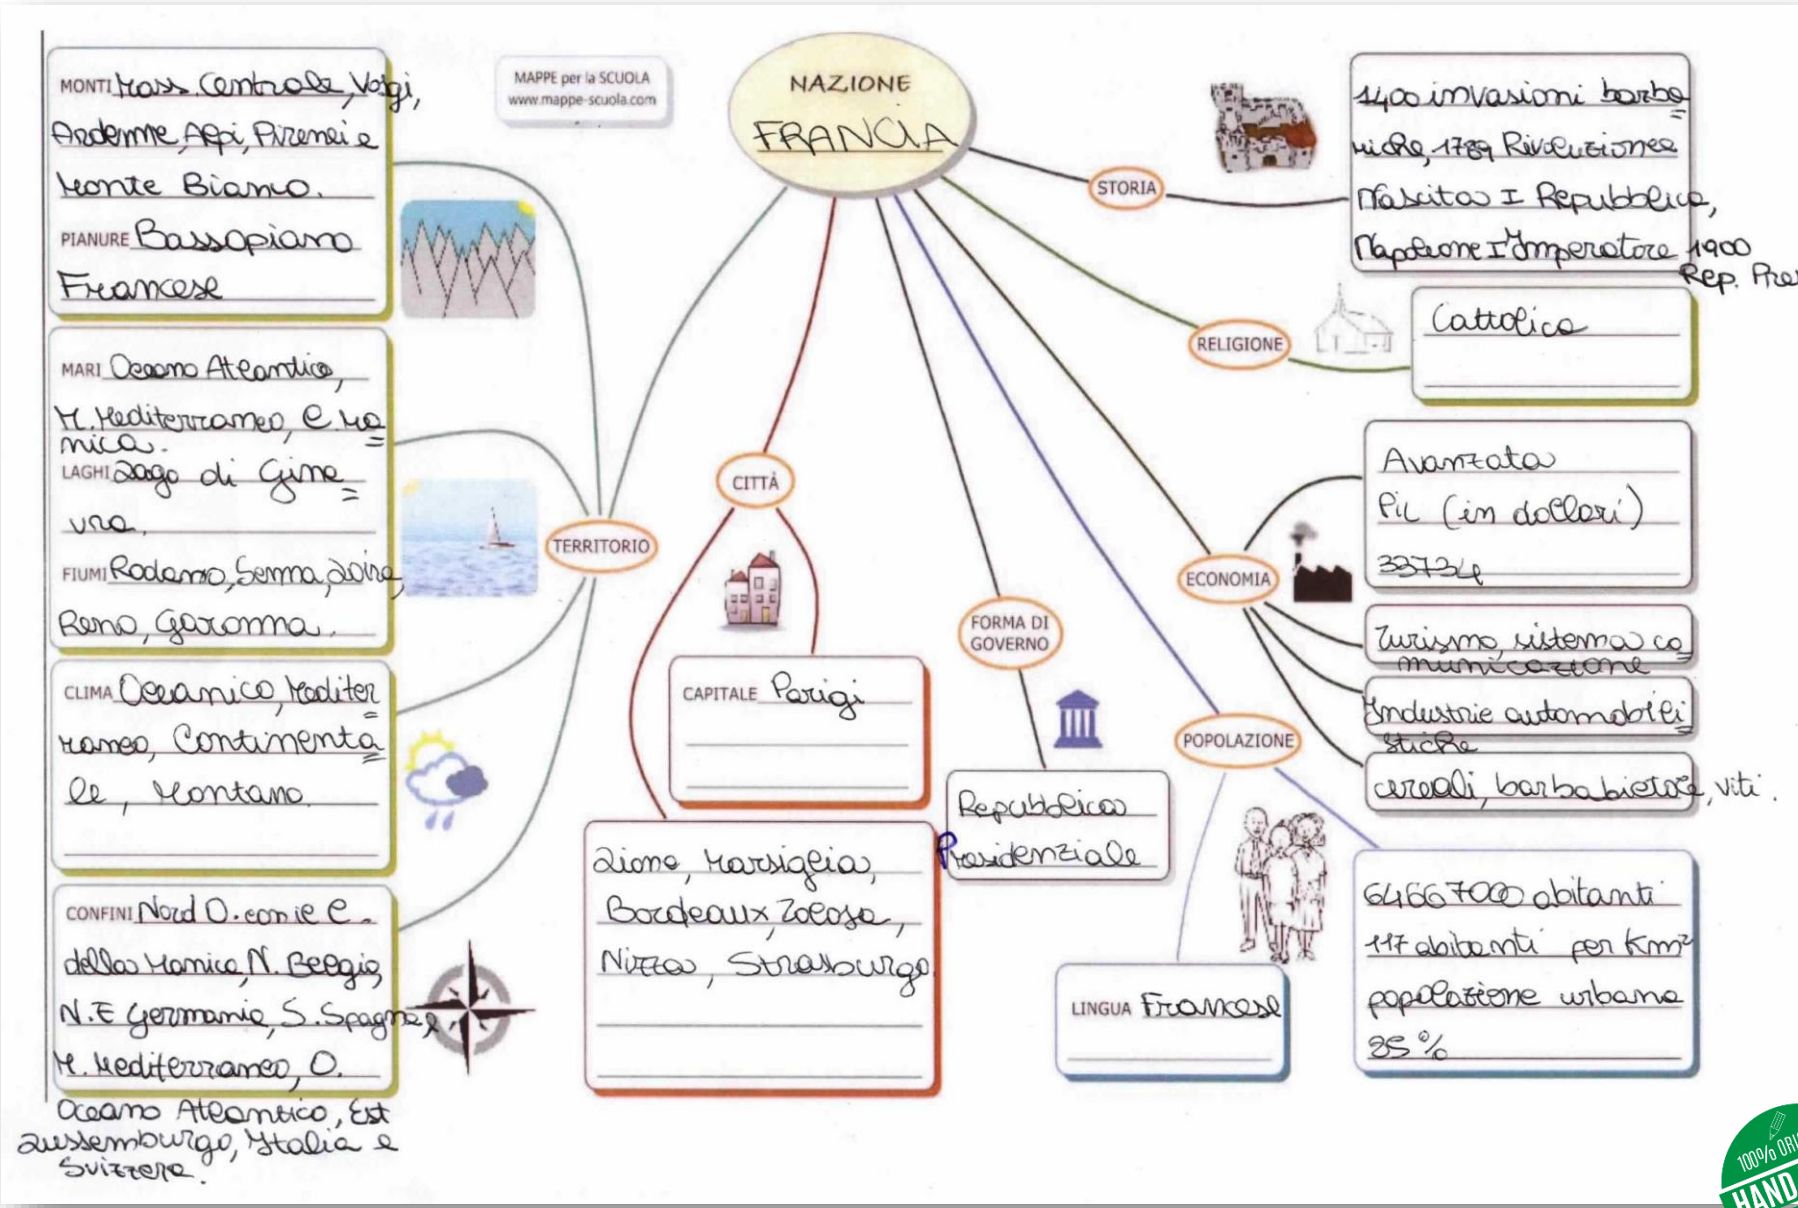 NAZIONE
FRANCIA
MAPPE per la SCUOLA
www.mappe-scuola.com
MONTI Mass. Centrale, Vosgi,
Ardenne, Alpi, Pirenei e
Monte Bianco.
PIANURE Bassopiano
Francese
MARI Oceano Atlantico,
M. Mediterraneo, C. Ma
nica.
LAGHI Lago di Gine
vra.
FIUMI Rodano, Senna, Loira,
Reno, Garonna.
CLIMA Oceanico, Mediter
raneo, Continenta
le, Montano.
CONFINI Nord O. con il C.
della Manica, N. Belgio,
N.E Germania, S. Spagna e
M. Mediterraneo, O.
Oceano Atlantico, Est
Lussemburgo, Italia e
Svizzera.
TERRITORIO
CITTÀ
CAPITALE Parigi
Lione, Marsiglia,
Bordeaux, Tolosa,
Nizza, Strasburgo.
FORMA DI
GOVERNO
Repubblica
Presidenziale
STORIA
1400 invasioni barba
riche, 1789 Rivoluzione e
Nascita I Repubblica,
Napoleone I Imperatore 1900
Rep. Pre
RELIGIONE
Cattolica
ECONOMIA
Avanzata
Pil (in dollari)
33734
Turismo, sistema co
municazione
Industrie automobili
stiche
cereali, barbabietole, viti.
POPOLAZIONE
LINGUA Francese
64667000 abitanti
117 abitanti per Km²
popolazione urbana
85%
100% ORI
HAND